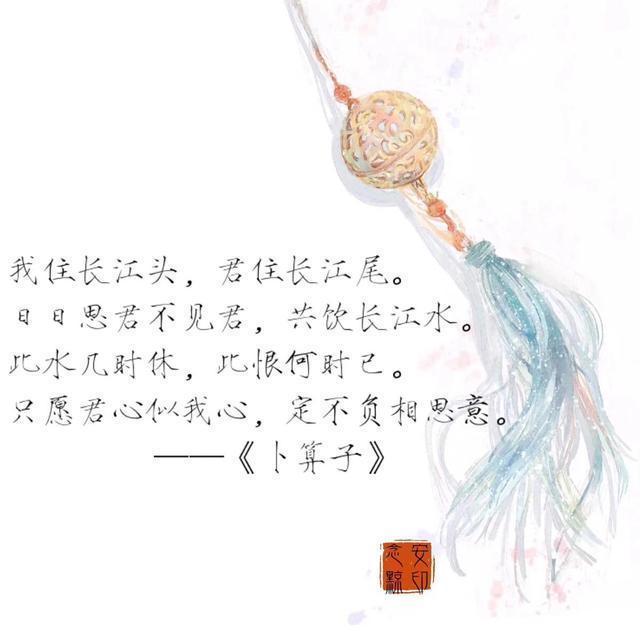 我住长江头，君住长江尾。
日日思君不见君，共饮长江水。
此水几时休，此恨何时已。
只愿君心似我心，定不负相思意。
——《卜算子》